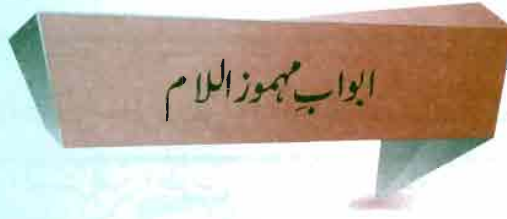 ابوابِ مہموز اللام